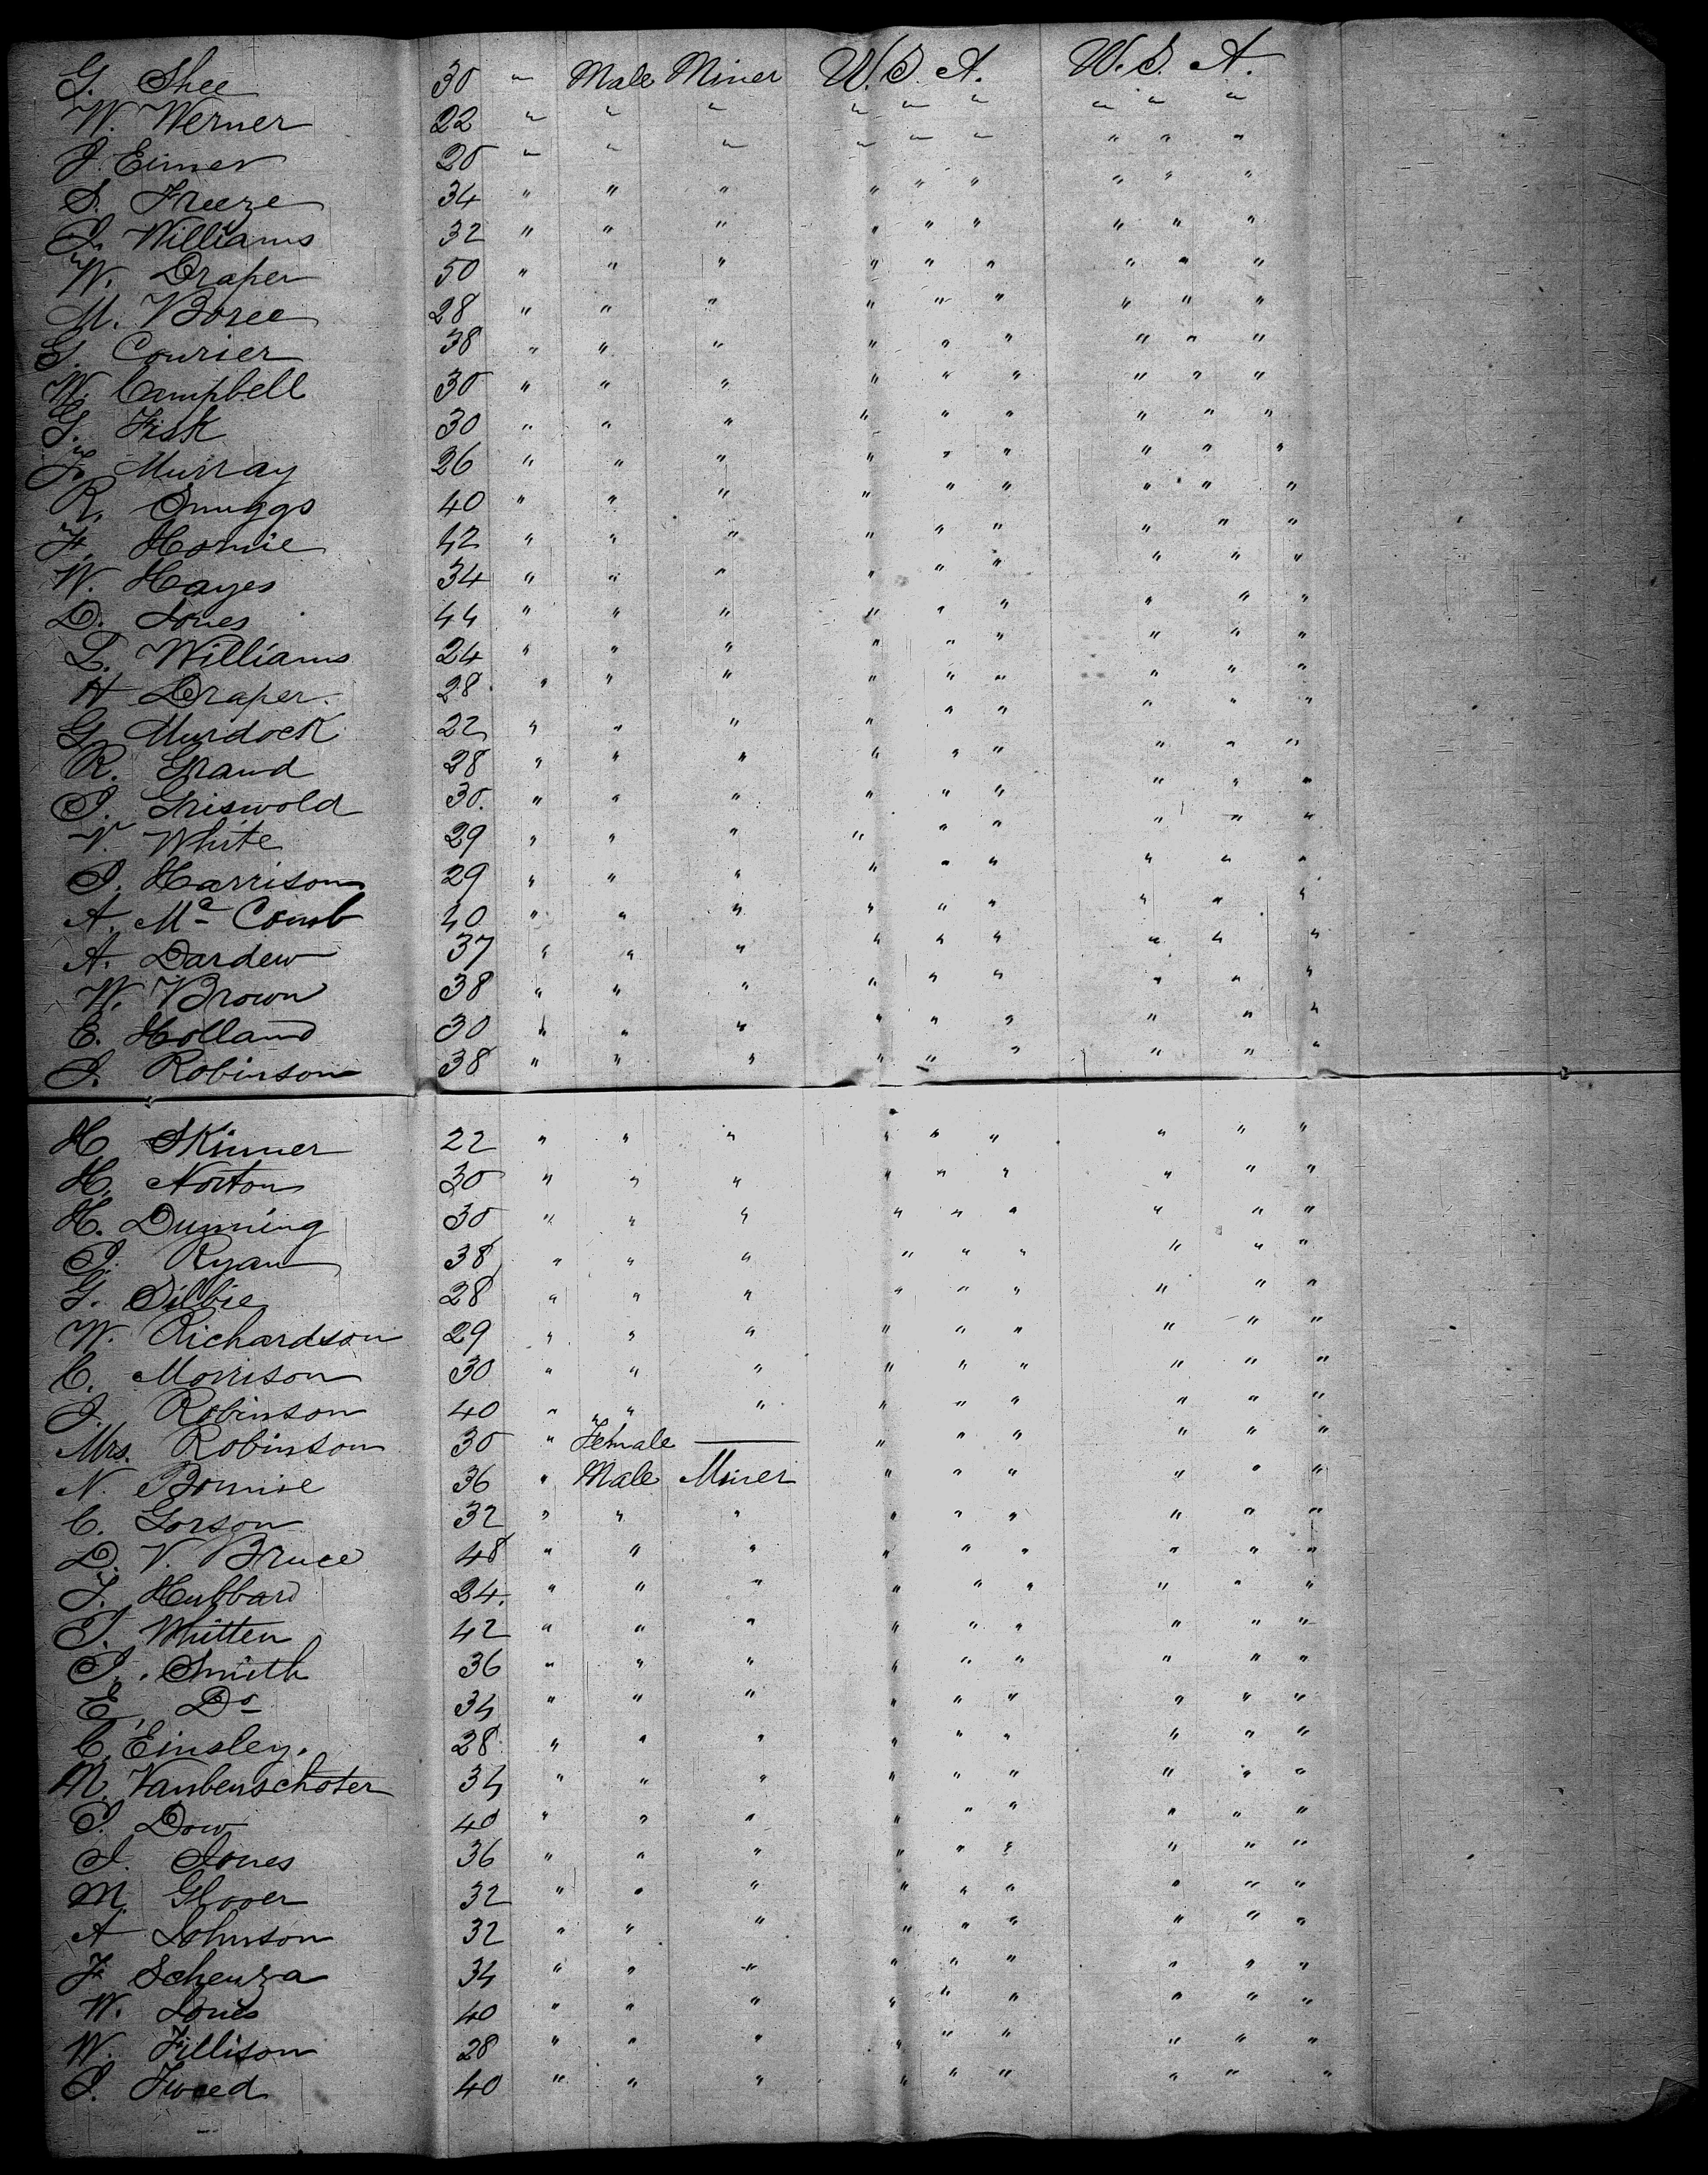 G. Shee 30 " Male Miner U.S. A. U.S. A.
W. Werner 22 " " " " " " " " "
J. Eimer 26 " " " " " " " " "
S. Freeze 34 " " " " " " " " "
J. Williams 32 " " " " " " " " "
W. Draper 50 " " " " " " " " "
M. Boree 28 " " " " " " " " "
G. Courier 38 " " " " " " " " "
W. Campbell 30 " " " " " " " " "
G. Fisk 30 " " " " " " " " "
F. Murray 26 " " " " " " " " "
R. Snuggs 40 " " " " " " " " "
F. Homie 42 " " " " " " " " "
W. Hayes 34 " " " " " " " " "
D. Jones 44 " " " " " " " " "
L. Williams 24 " " " " " " " " "
H Draper. 28 " " " " " " " " "
G. Murdock 22 " " " " " " " " "
R. Grand 28 " " " " " " " " "
J. Griswold 30. " " " " " " " " "
V. White 29 " " " " " " " " "
J. Harrison 29 " " " " " " " " "
A. Mc Comb 40 " " " " " " " " "
A. Dardew 37 " " " " " " " " "
W. Brown 38 " " " " " " " " "
E. Holland 30 " " " " " " " " "
J. Robinson 38 " " " " " " " " "
H Skinner 22 " " " " " " " " "
H. Norton 30 " " " " " " " " "
H. Dunning 30 " " " " " " " " "
P. Ryan 38 " " " " " " " " "
G. Dilbie 28 " " " " " " " " "
W. Richardson 29 " " " " " " " " "
C. Morrison 30 " " " " " " " " "
J. Robinson 40 " " " " " " " " "
Mrs. Robinson 30 " Female — " " " " " "
N. Bonnie 36 " Male Miner " " " " " "
C. Gorson 32 " " " " " " " " "
D. V. Bruce 48 " " " " " " " " "
J. Hubbard 24. " " " " " " " " "
T. Whitten 42 " " " " " " " " "
J. Smith 36 " " " " " " " " "
E. Do 34 " " " " " " " " "
C. Einsley. 28 " " " " " " " " "
M. Vanbenschoter 34 " " " " " " " " "
P. Dow 40 " " " " " " " " "
J. Jones 36 " " " " " " " " "
M. Glover 32 " " " " " " " " "
A Johnson 32 " " " " " " " " "
F. Schenza 34 " " " " " " " " "
W. Jones 40 " " " " " " " " "
W. Fillison 28 " " " " " " " " "
J. Tweed 40 " " " " " " " " "